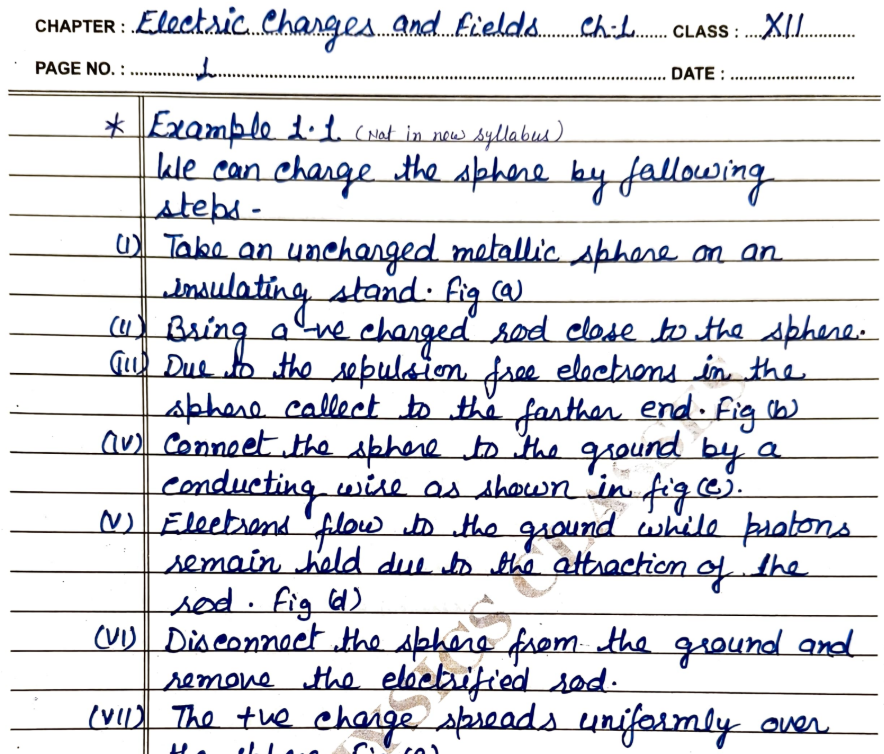 CHAPTER : Electric Charges and Fields Ch-1 CLASS : XII
PAGE NO. : 1 DATE :
* Example 1.1 (Not in new syllabus)
We can charge the sphere by following
steps -
(i) Take an uncharged metallic sphere on an
insulating stand. Fig (a)
(ii) Bring a -ve charged rod close to the sphere.
(iii) Due to the repulsion free electrons in the
sphere collect to the farther end. Fig (b)
(iv) Connect the sphere to the ground by a
conducting wire as shown in fig (c).
(v) Electrons flow to the ground while protons
remain held due to the attraction of the
rod. Fig (d)
(vi) Disconnect the sphere from the ground and
remove the electrified rod.
(vii) The +ve charge spreads uniformly over
the sphere fig (e)
PHYSICS CLASSES